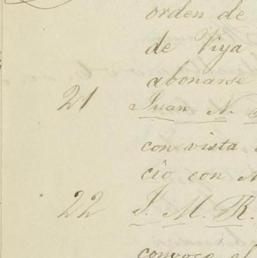 orden de
de Viya
abonarse
21 Juan N.
con vista
cio con
22 J. M. R.
convoco el